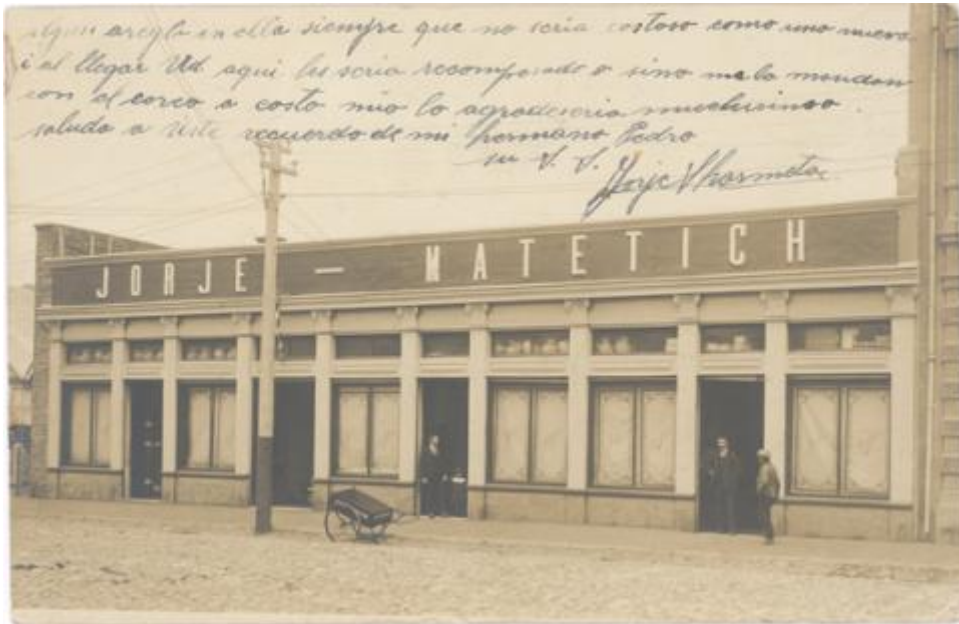 algun areglo en ella siempre que no seria costoso como uno nuevo
i al llegar Ud. aqui les seria recompensado o sino me la mandan
con el correo a costo mio lo agradeseria muchisimo.
saluda a Uste recuerdo de mi hermano Pedro
su S. S.
Jorje
JORJE — MATETICH